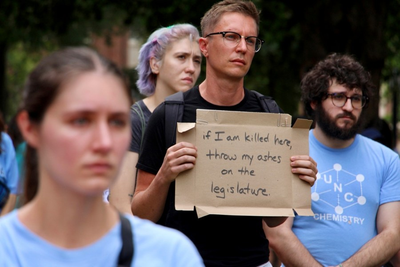 if I am killed here,
throw my ashes
on the
legislature.
UNC
CHEMISTRY